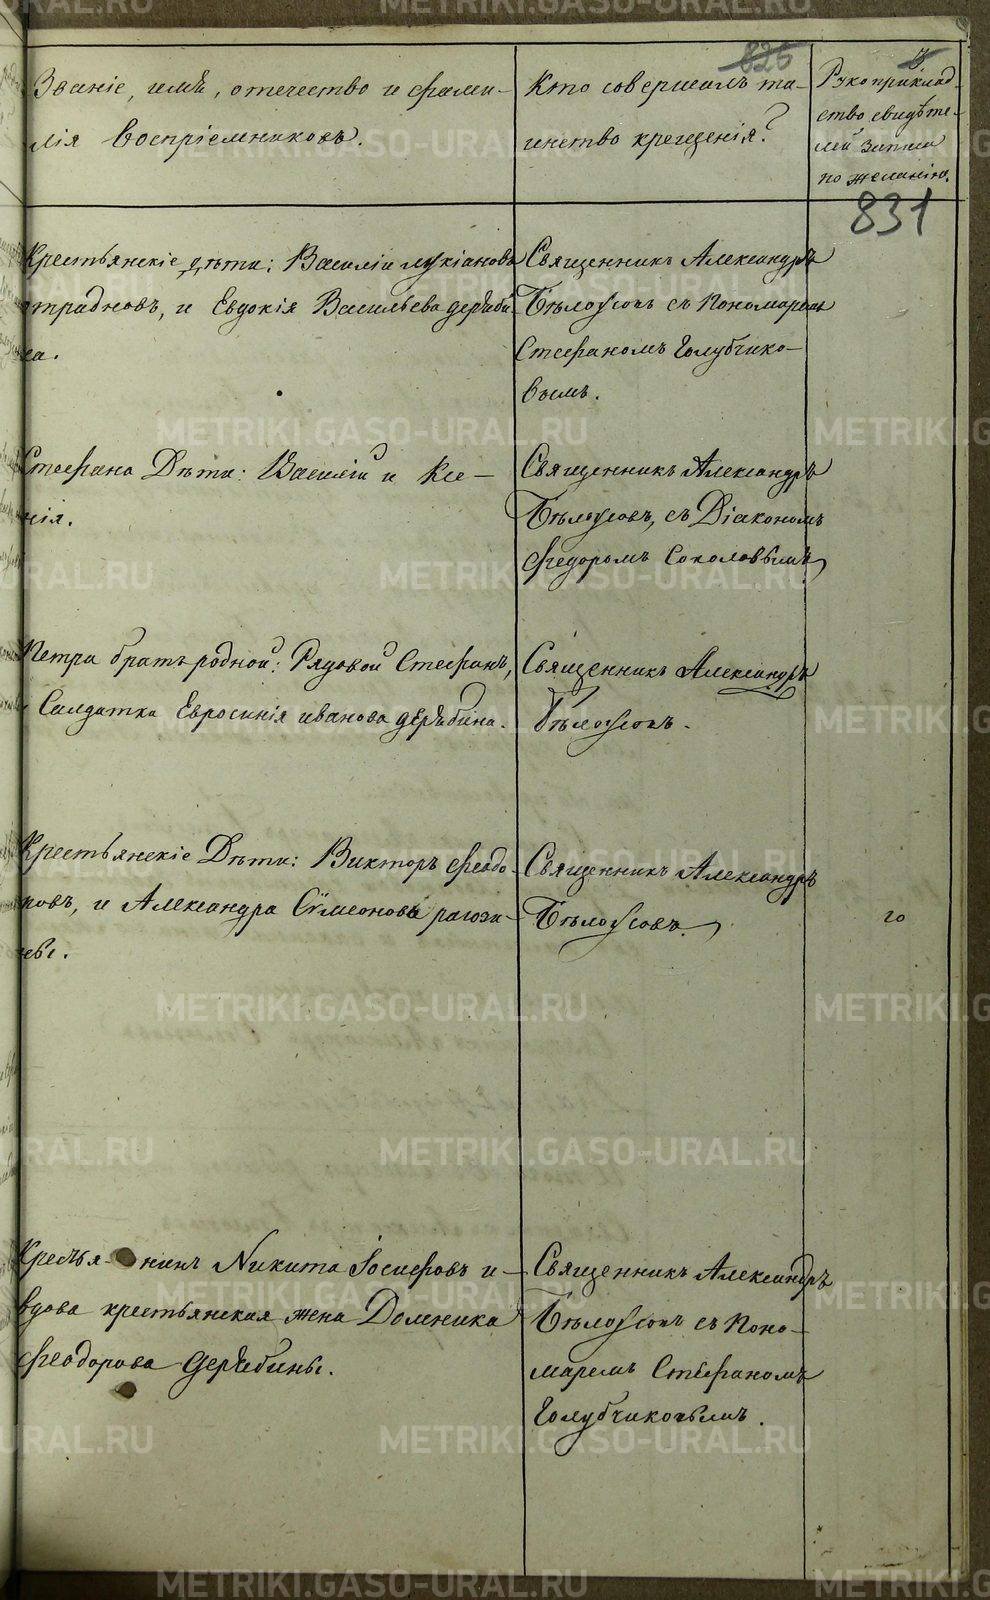 826
831
Званіе, имѣ, отечество и фами-
лія воспріемниковъ.
Кто совершилъ та-
инство крещенія?
Рукоприклад-
ство свидѣте-
лей записи
по желанію.
Крестьянскіе дѣти: Василіи Лукіановъ
Отрадновъ, и Евдокія Васильева Деряби-
на.
Священникъ Александръ
Бѣлоусовъ съ Пономаремъ
Стефаномъ Голубчико-
вымъ.
Стефана Дѣти: Василій и Ксе-
нія.
Священникъ Александръ
Бѣлоусовъ, съ Діакономъ
Федоромъ Соколовымъ
Петра братъ родной: Рядовой Стефанъ,
Салдатка Евросинія Иванова Дерябина.
Священникъ Александръ
Бѣлоусовъ.
Крестьянскіе Дѣти: Викторъ Феодо-
ровъ, и Александра Сѵмеонова Рагози-
ны.
Священникъ Александръ
Бѣлоусовъ.
го
Крестья-нинъ Никита Іосифовъ и
вдова крестьянская жена Домника
Феодорова Дерябины.
Священникъ Александръ
Бѣлоусовъ съ Поно-
маремъ Стефаномъ
Голубчиковымъ.
METRIKI.GASO-URAL.RU